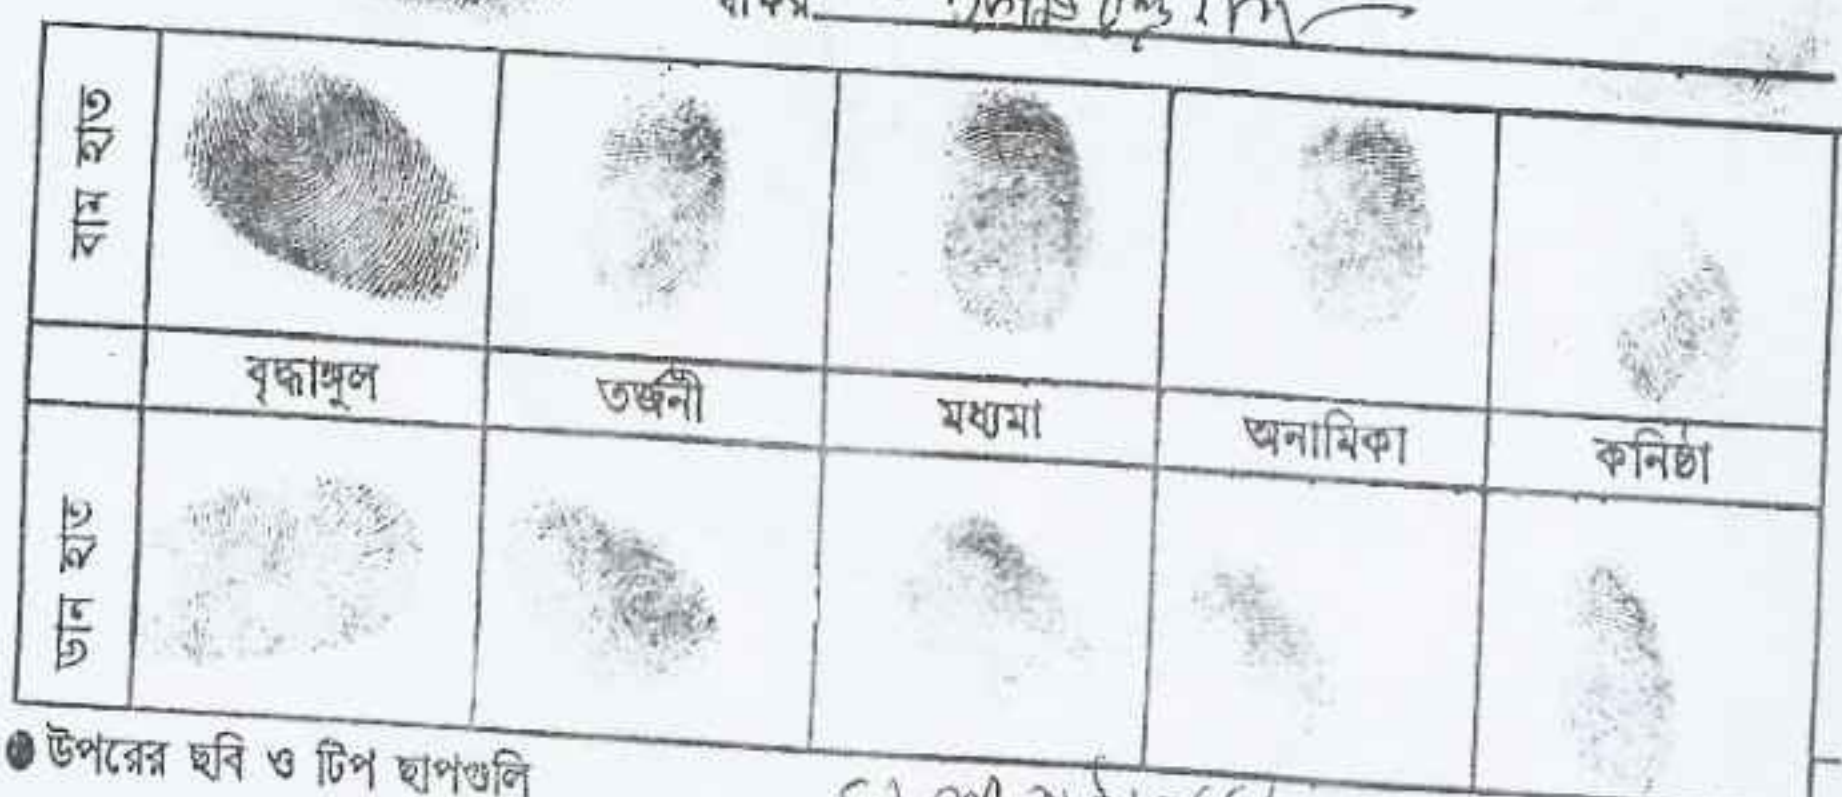 স্বাক্ষর
বাম হাত
বৃদ্ধাঙ্গুল তর্জনী মধ্যমা অনামিকা কনিষ্ঠা
ডান হাত
উপরের ছবি ও টিপ ছাপগুলি